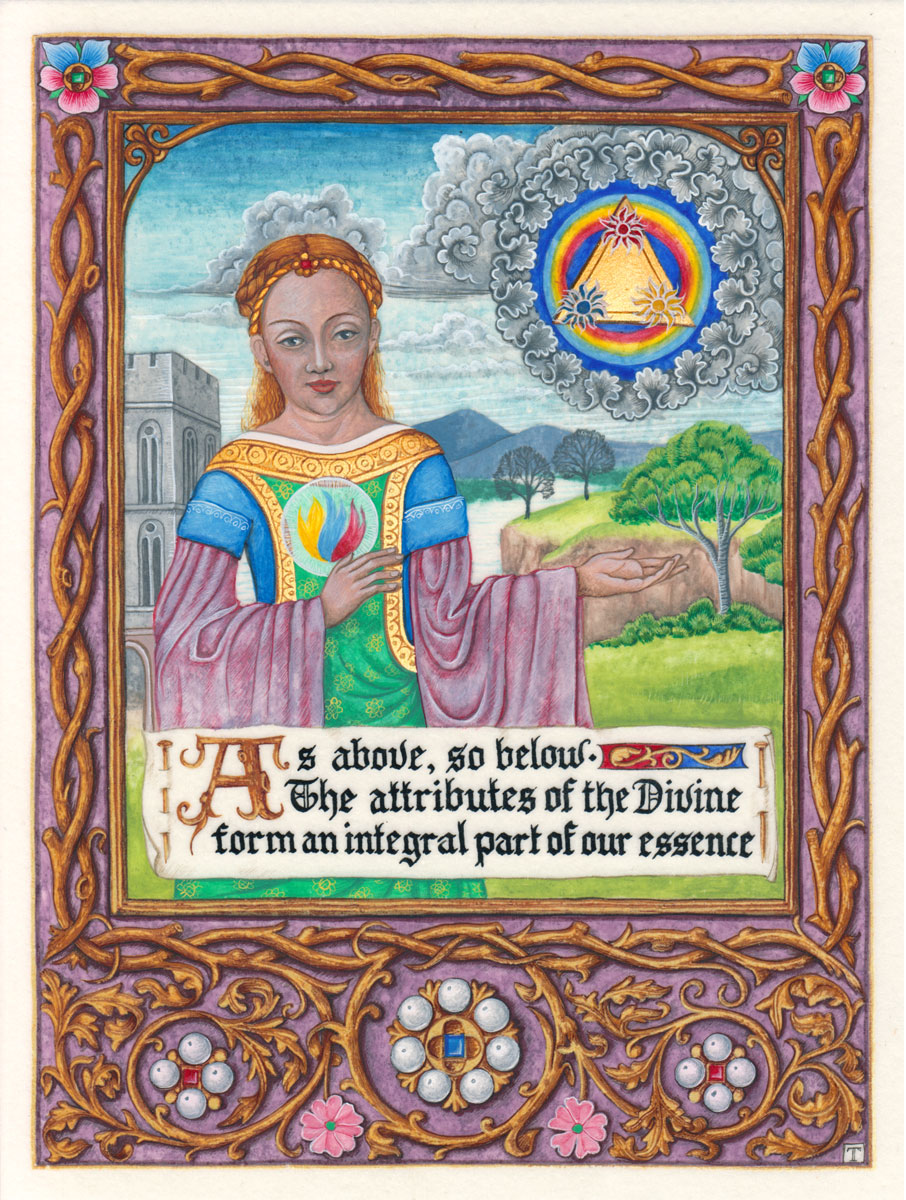 As above, so below.
The attributes of the Divine
form an integral part of our essence
T